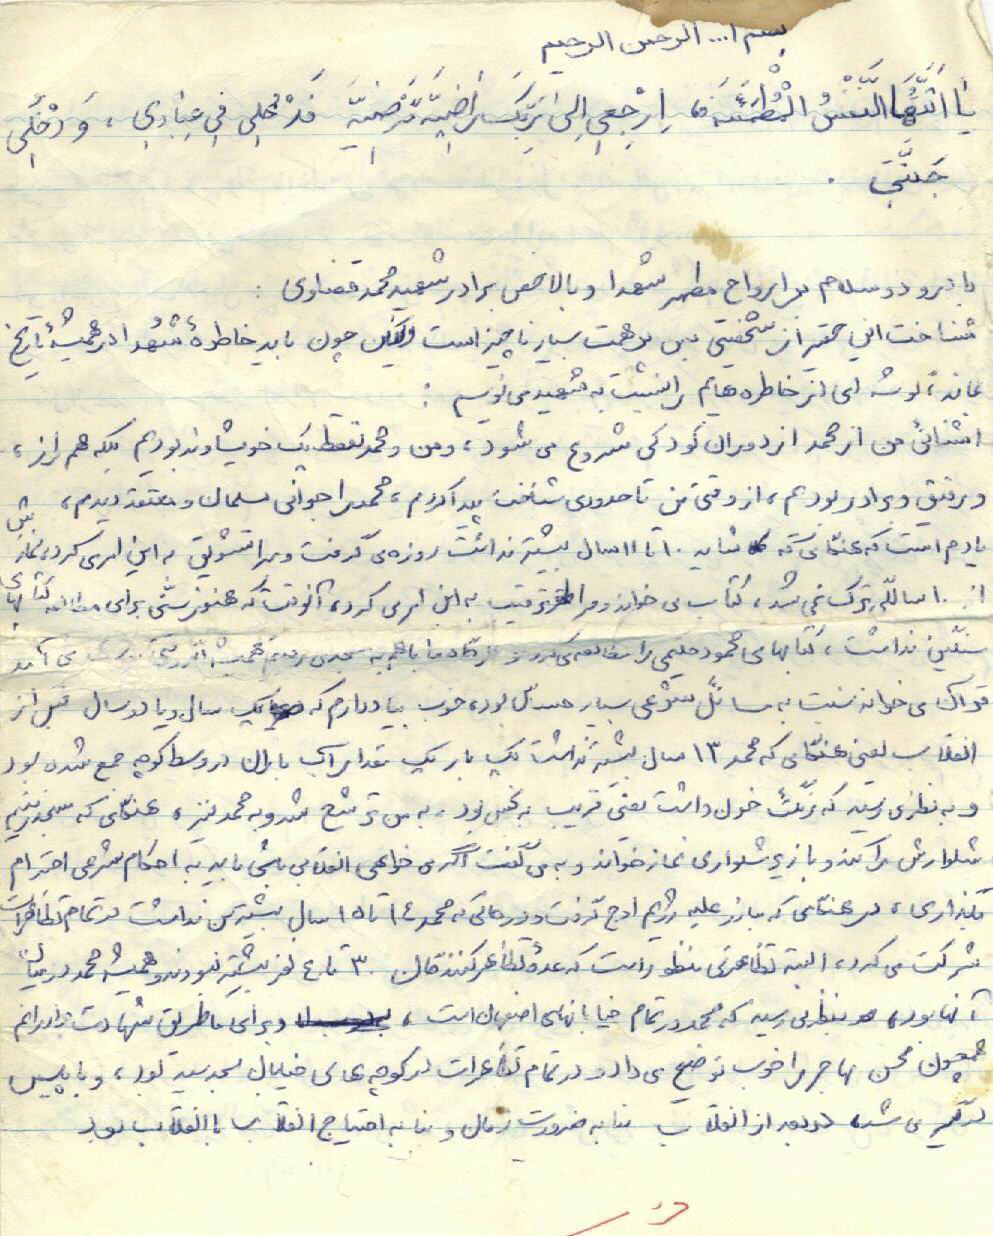 بسم ا... الرحمن الرحیم
یا اَیَّتُهَا النَّفْسُ الْمُطْمَئِنَّه، اِرْجِعِی اِلی رَبِّکَ راضِیَةً مَّرْضِیَّة فَدْخُلِی فِی عِبادِی، وَدْخُلِی
جَنَّتِی .
با درود و سلام بر ارواح مطهر شهدا و بالاخص برادر شهید محمد قضاوی :
شناخت این حقیر از شخصیتی بس پرهمت بسیار ناچیز است ولیکن چون باید خاطرهٔ شهدا در همیشهٔ تاریخ
بماند، گوشه ای از خاطره هایم را نسبت به شهید می نویسم :
اشنائی من از محمد از دوران کودکی شروع می شود، ومن و محمد نه فقط یک خویشاوند بودیم بلکه هم راز،
و رفیق و برادر بودیم، از وقتی من تا حدودی شناخت پیدا کردم، محمد را جوانی مسلمان و معتقد دیدم،
یادم است که هنگامی که شاید ۱۰ تا ۱۱ سال بیشتر نداشت روزه می گرفت و مرا تشویق به این امر می کرد، نمازش
از ۱۰ سالگی ترک نمی شد، کتاب می خواند و مرا ترغیب به این امر می کرد، آنوقت که هنوز سنّی برای مطالعه کتابهای
سنگین نداشت، کتابهای محمود حکیمی را مطالعه می کرد و هرگاه ما با هم به مسجد می رفتیم همیشه می آمد
قرآن می خواند نسبت به مسائل شرعی بسیار حساس بود، خوب بیاد دارم که یک سال و یا دو سال قبل از
انقلاب یعنی هنگامی که محمد ۱۳ سال بیشتر نداشت یک بار یک مقدار آب باران در وسط کوچه جمع شده بود
و به نظر می رسید که رنگ خون داشت یعنی قریب به نجس بود، به من ترشح شد و به محمد نیز، هنگامی که مسجد رفتیم
شلوارش را کند و با زیر شلواری نماز خواند و به من گفت اگر می خواهی انقلابی باشی باید به احکام شرعی احترام
بگذاری، در هنگامی که مبارزه علیه رژیم اوج گرفت و در حالی که محمد ۱٤ تا ۱۵ سال بیشتر سن نداشت در تمام تظاهرات
شرکت می کرد، البته تظاهراتی منظور است که عدهٔ تظاهر کنندگان ۳۰ تا ٤۰ نفر بیشتر نبودند و همیشه محمد در میان
آنها بود، بنظر می رسید که محمد در تمام خیابانهای اصفهان است، و برای ما طریق شهادت برادرانم
همچون محسن مهاجر را خوب توضیح می داد و در تمام تظاهرات در کوچه های خیابان مسجد سید بود، و با پلیس
درگیر می شد، و بعد از انقلاب بنا به ضرورت زمان و بنا به احتیاج انقلاب با انقلاب بود